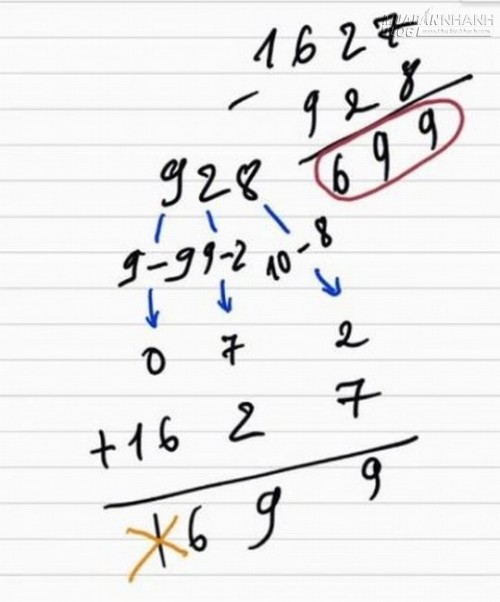 MUABÁNNHANH
BLOG
1627
- 928
699
928
9-9 9-2 10-8
0 7 2
+16 2 7
16 9 9